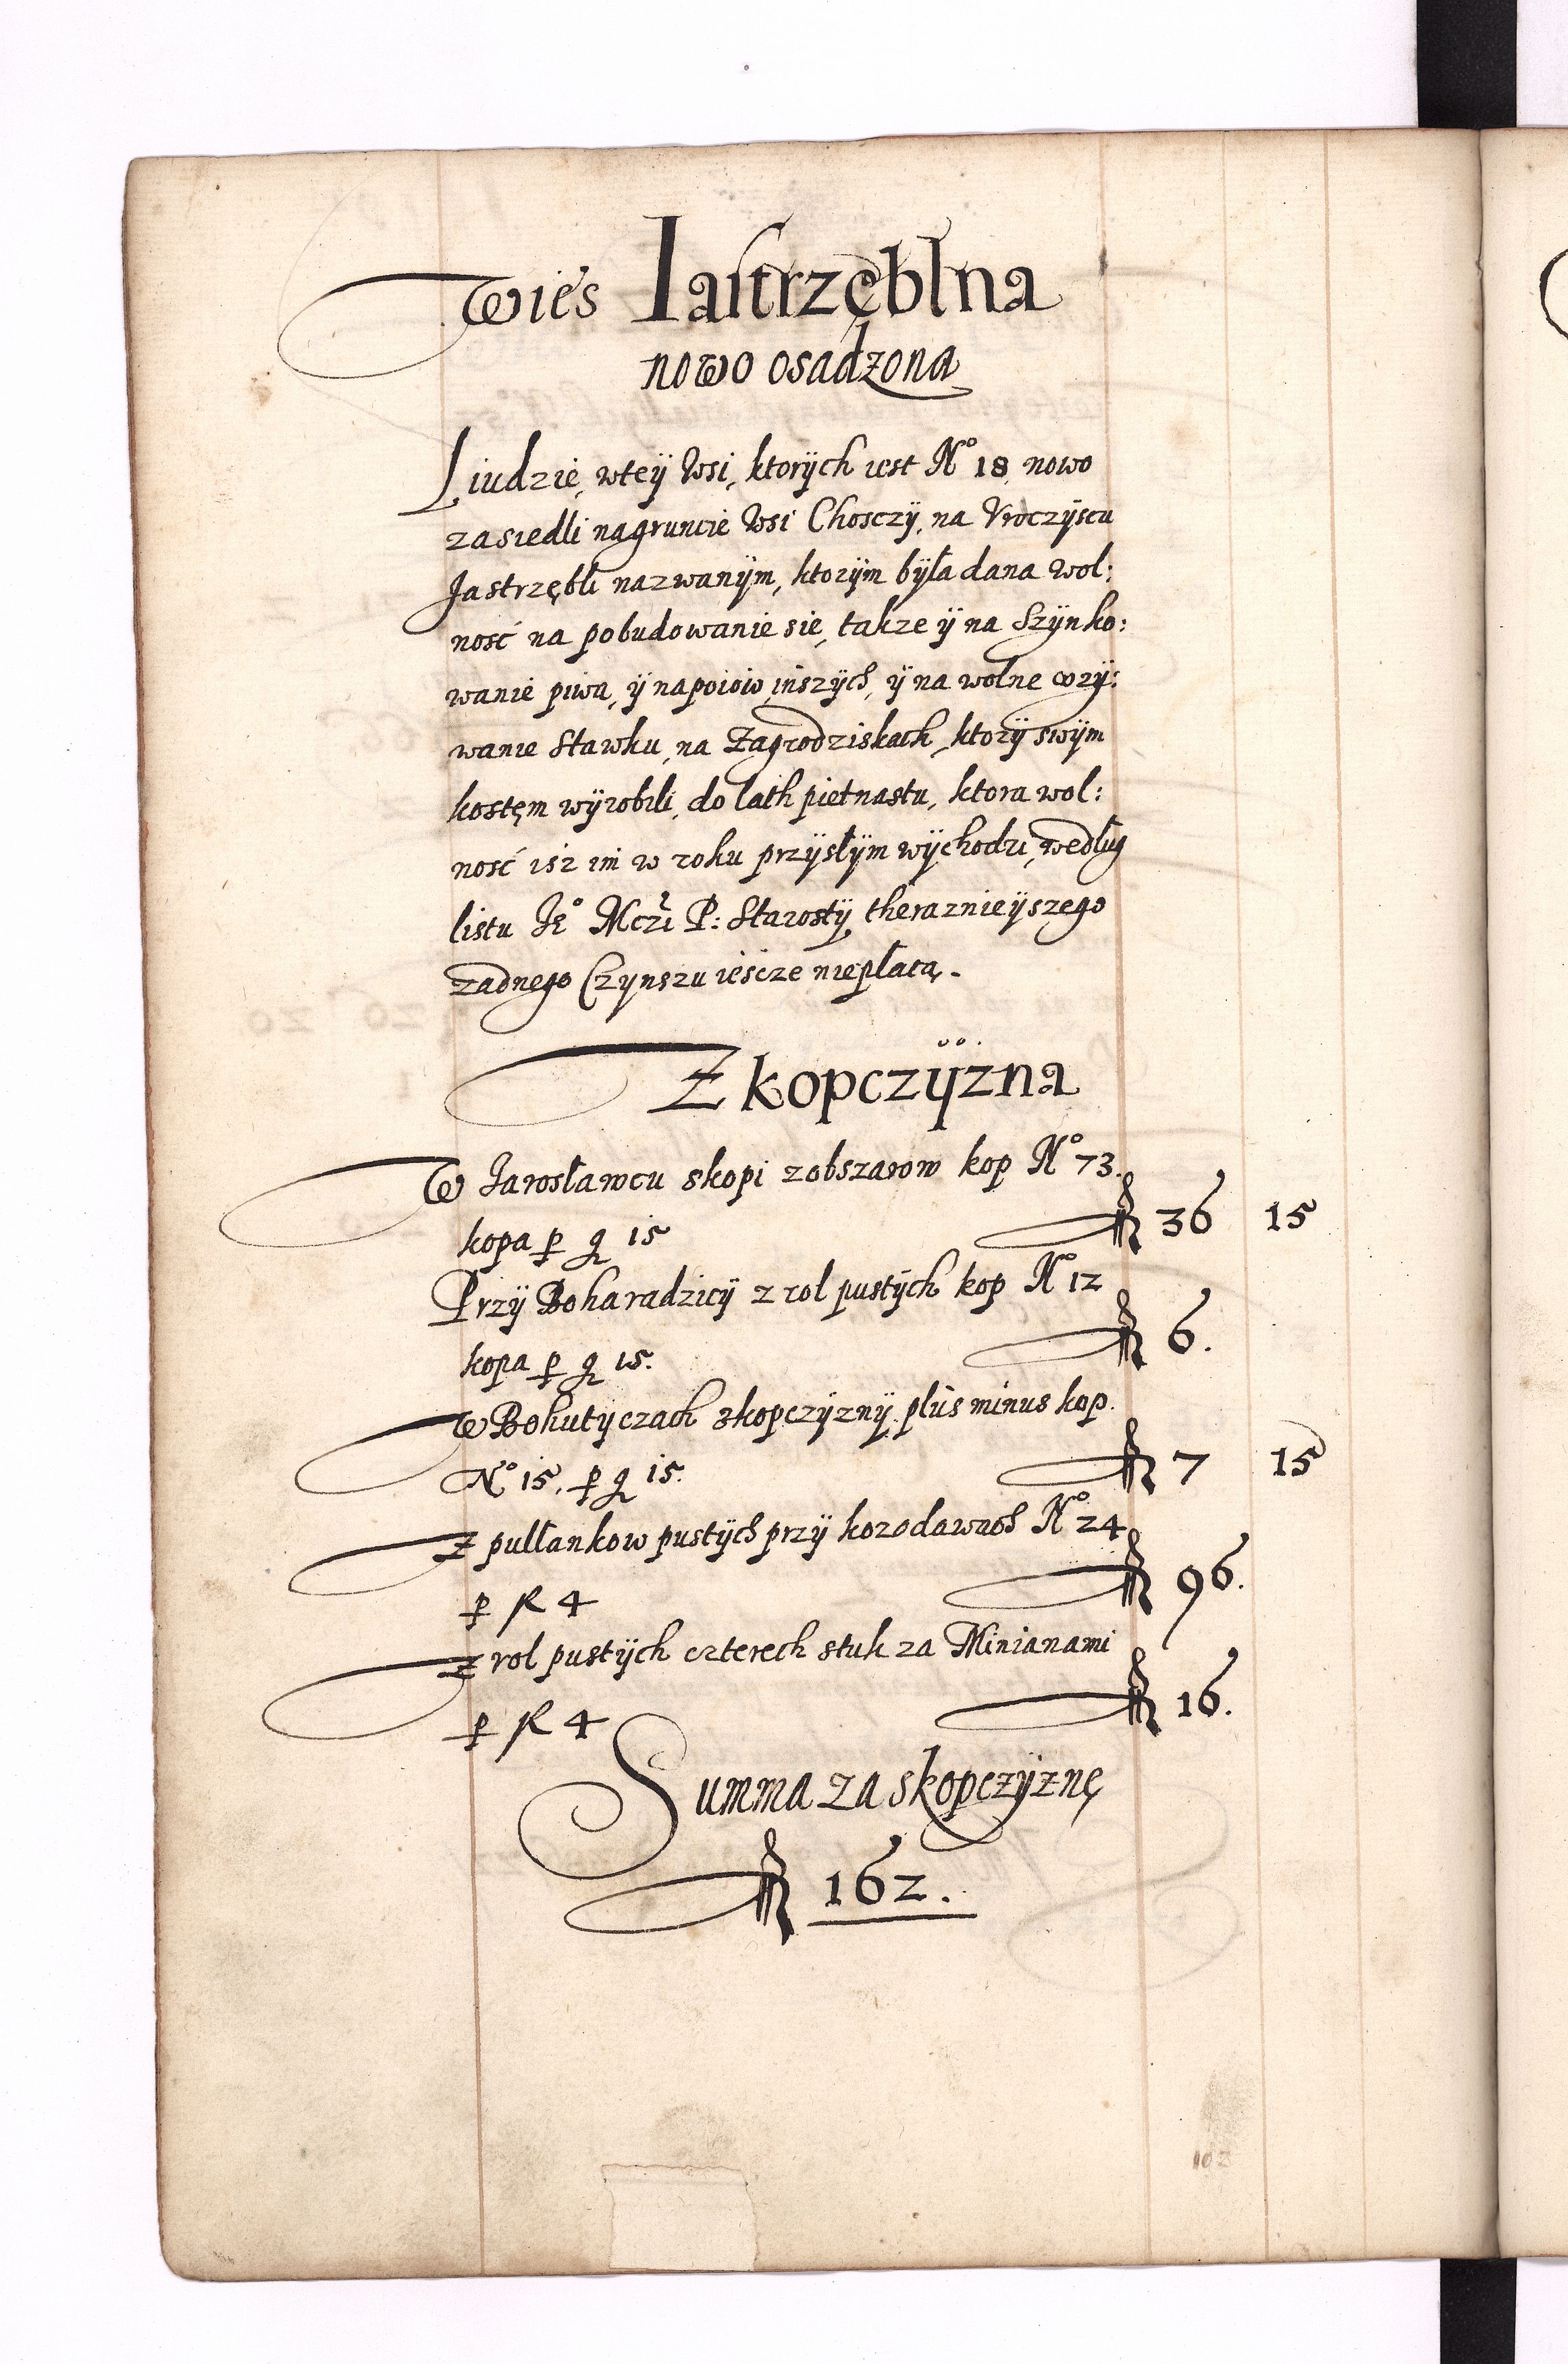 Wieś Iastrzęblna
nowo osadzona
Liudzie, wteÿ Wsi, ktorÿch iest No 18, nowo
zasiedli nagruncie Wsi Chosczÿ, na Vroczÿscu
Jastrzębli nazwanÿm, ktorÿm bÿła dana wol:
ność na pobudowanie sie, takze ÿ na Szÿnko:
wanie piwa, ÿ napoiow inszÿch, ÿ na wolne vzÿ:
wanie Stawku, na Zagrodziskach, ktorÿ swÿm
kostęm wÿrobili, do lath pietnastu, ktora wol:
ność isz im w roku przÿsłÿm wÿchodzi, według
listu Jeo Mczi P: Starostÿ, theraznieÿszego
zadnego Czynszu ieścze niepłacą.
Z kopczÿzna
W Jarosławcu skopi zobszarow kop No 73.
kopa p g 15 fl 36 15
Przÿ Boharadzicÿ z rol pustÿch kop No 12
kopa p g 15. fl 6.
W Bohutyczach zkopczÿznÿ plus minus kop.
No 15, p g 15. fl 7 15
Z pułłankow pustÿch przÿ kozodawach No 24
p fl 4 fl 96.
Z rol pustÿch czterech stuk za Minianami
p fl 4 fl 16.
Summa za skopczÿznę
fl 162.
102